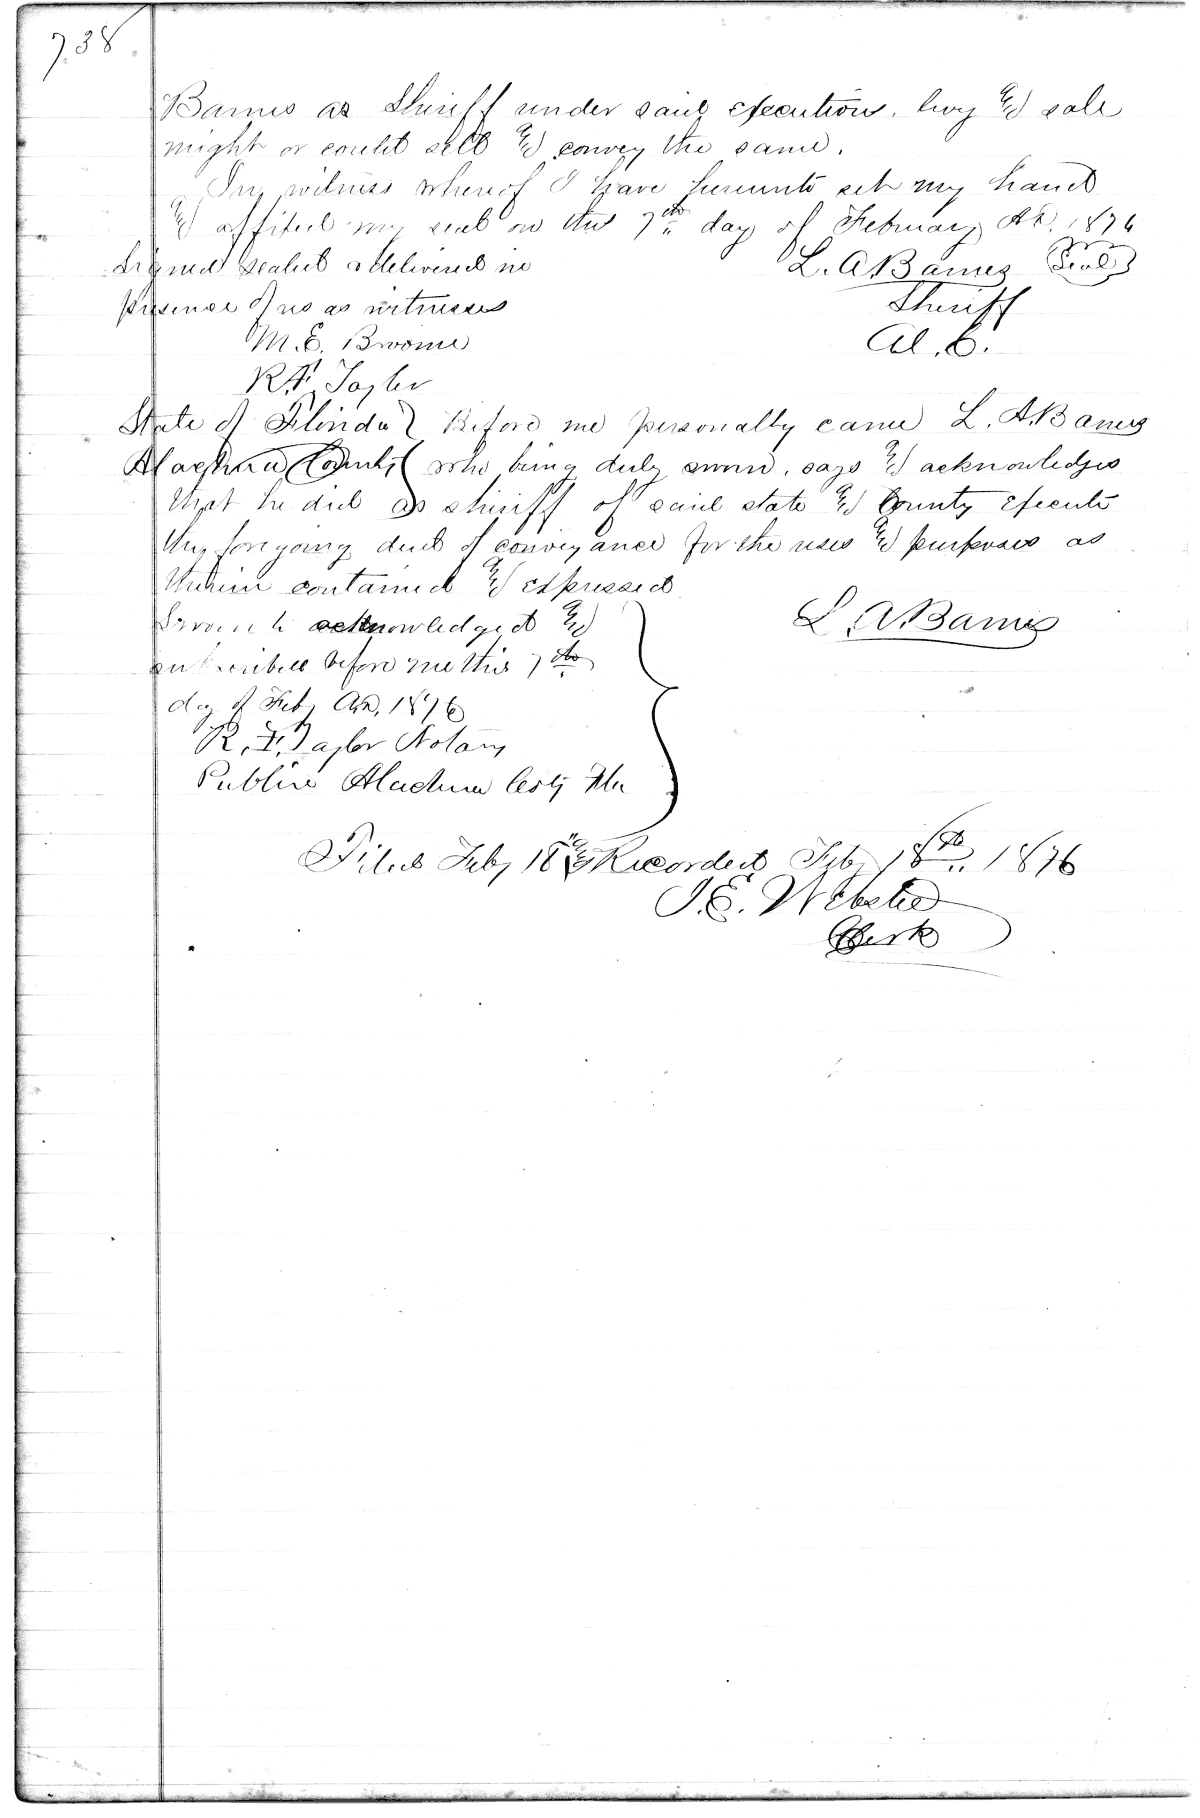 738
Barnes as Sheriff under said execution, levy & sale
might or could sell & convey the same.
In witness whereof I have hereunto set my hand
& affixed my seal on this 7th day of February AD. 1876
Signed sealed & delivered in L. A. Barnes Seal
presence of us as witnesses Sheriff
M. E. Broome Al. C.
R. F. Taylor
State of Florida } Before me personally came L. A. Barnes
Alachua County } who being duly sworn, says & acknowledges
that he did as sheriff of said state & County Execute
the foregoing deed of conveyance for the uses & purposes as
therein contained & expressed
Sworn to acknowledged & L. A. Barnes
subscribed before me this 7th
day of Feby AD, 1876
R. F. Taylor Notary
Public Alachua Cty Fla
Filed Feby 18th & Recorded Feby 18th 1876
J. E. Webster
Clerk